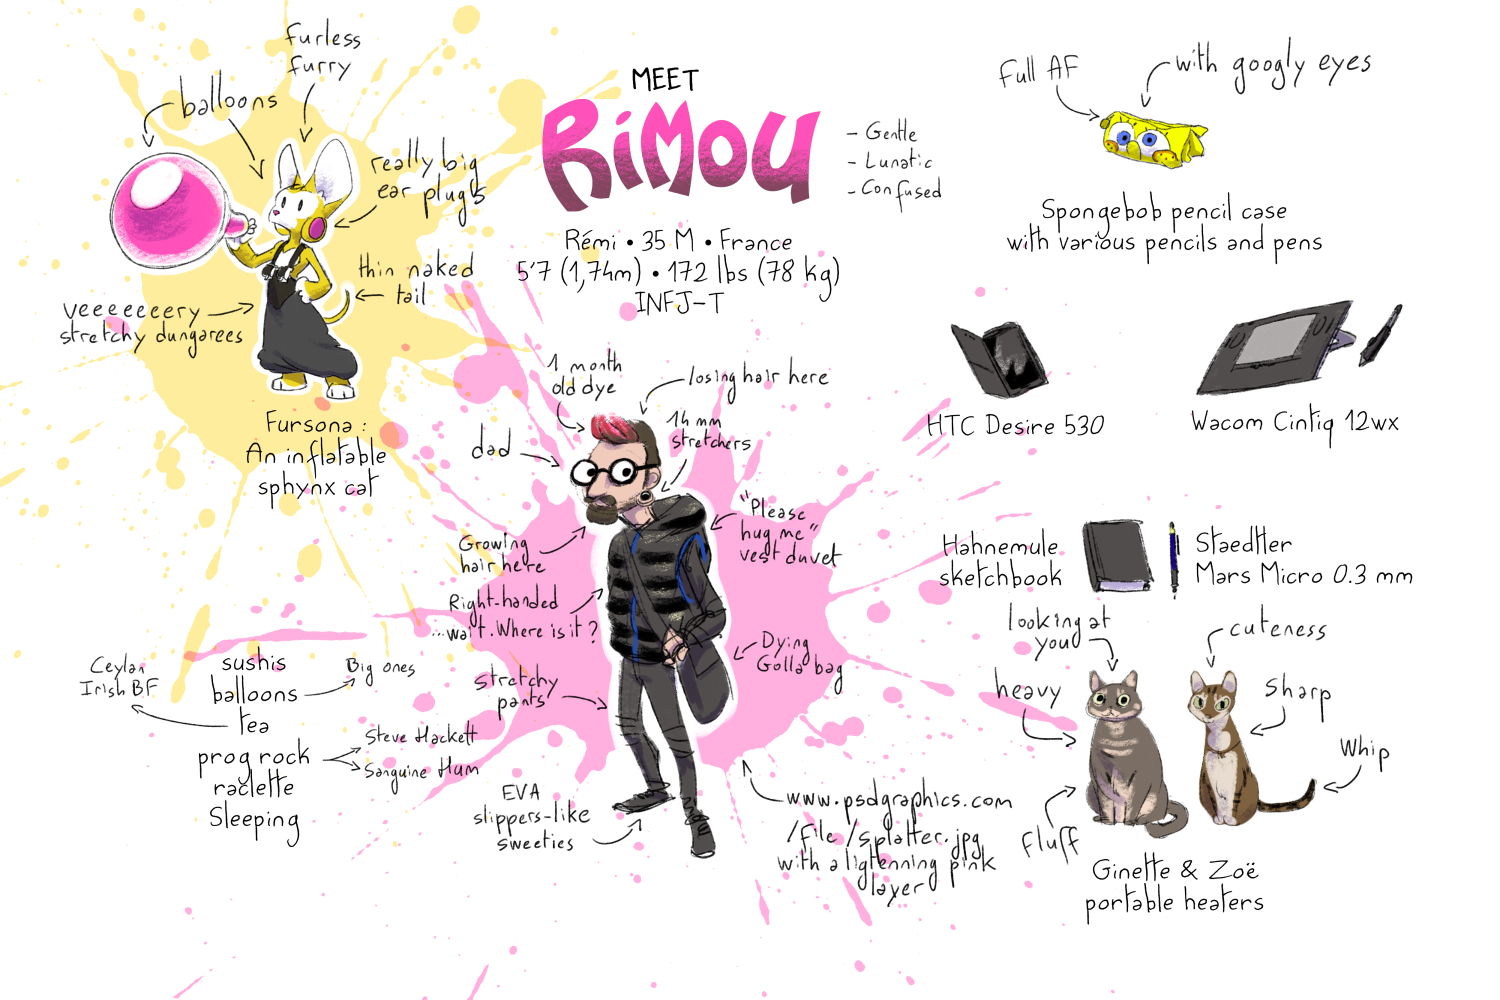 MEET
RiMOU
- Gentle
- Lunatic
- Confused
Rémi • 35 M • France
5'7 (1,74m) • 172 lbs (78 kg)
INFJ-T
furless
furry
balloons
really big
ear plugs
thin naked
tail
veeeeeeery
stretchy dungarees
Fursona :
An inflatable
sphynx cat
Full AF
with googly eyes
Spongebob pencil case
with various pencils and pens
HTC Desire 530
Wacom Cintiq 12wx
Hahnemule
sketchbook
Staedtler
Mars Micro 0.3 mm
1 month
old dye
losing hair here
14 mm
stretchers
dad
"Please
hug me"
vest duvet
Growing
hair here
Right-handed
...wait. Where is it ?
Dying
Golla bag
stretchy
pants
EVA
slippers-like
sweeties
www.psdgraphics.com
/file/splatter.jpg
with a ligtenning pink
layer
sushis
balloons
Big ones
tea
Ceylan
Irish BF
prog rock
Steve Hackett
Sanguine Hum
raclette
Sleeping
looking at
you
cuteness
heavy
sharp
Whip
fluff
Ginette & Zoë
portable heaters